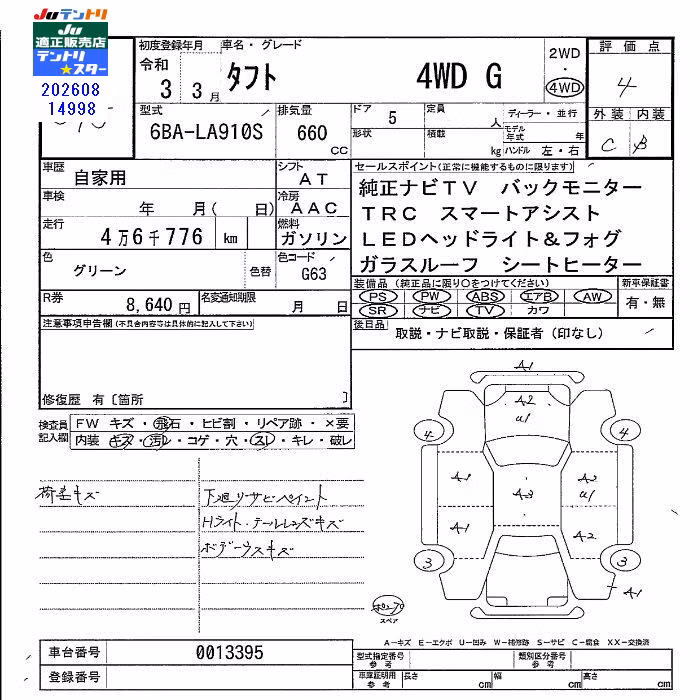 Juテントリ
Ju
適正販売店
テントリ
★スター
202608
14998
初度登録年月 車名・グレード
令和
3 3月 タフト 4WD G
2WD
・
4WD
評価点
4
外装 内装
C B
型式 排気量 ドア 5 定員 人 ディーラー・並行
6BA-LA910S 660 CC
形状 積載 kg モデル年式 年
ハンドル 左・右
車歴 自家用 シフト AT
車検 年 月( 日) 冷房 AAC
走行 4万6千776 km 燃料 ガソリン
色 グリーン 色替 色コード G63
R券 8,640円 名変通知期限 月 日
セールスポイント(正常に機能するものに限ります)
純正ナビTV バックモニター
TRC スマートアシスト
LEDヘッドライト&フォグ
ガラスルーフ シートヒーター
装備品 (純正品に限り○をつけてください) 新車保証書
PS PW ABS エアB AW 有・無
SR ナビ TV カワ
後日品 取説・ナビ取説・保証者(印なし)
注意事項申告欄(不具合内容等は具体的に記入して下さい)
修復歴 有〔箇所 〕
検査員記入欄
FW キズ・飛石・ヒビ割・リペア跡・×要
内装 キズ・汚レ・コゲ・穴・スレ・キレ・破レ
荷室キズ 下廻りサビペイント
Hライト・テールレンズキズ
ボデーウスキズ
A1
A2
U1
4 4
A2 A2
U1
A3
A1 A2
3 3
A1
スペア
A-キズ E-エクボ U-凹み W-補修跡 S-サビ C-腐食 XX-交換済
車台番号 0013395
登録番号
型式指定番号 参考 類別区分番号 参考
車庫証明用 参考 長さ cm 幅 cm 高さ cm